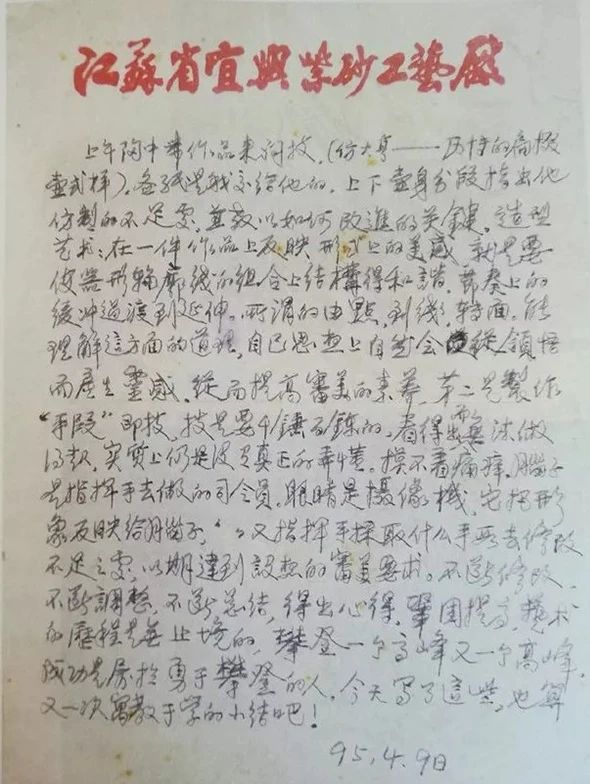 江蘇省宜興紫砂工藝廠
上午陶中帶作品来問技，(仿大亨——
壶式样)。各 是我交给他的，上下壶身分段指出他
仿製的不足處，並教以如何改進的关鍵。造型
艺术：在一件作品上反映形式上的美感，就是要
使器形輪廓线的組合上結構得和諧，節奏上的
緩冲過渡到延伸。所谓的由點，到线，转面。能
理解這方面的道理，自己思想上自然会 從領悟
而產生靈感，從而提高審美的素養，第二是製作
“手段”即技，技是要千錘百鍊的。看得出而無法做
得
是指揮手去做的司令員，眼睛是摄像機，它把形
象反映给腦子，〃〃又指揮手採取什么手段去修改
不足之處，以期達到設想的審美要求。不斷修改，
不斷調整，不斷总結，得出心得，鞏固提高，藝术
的歷程是無止境的，攀登一个高峰又一个高峰，
成功是属於勇于攀登的人，今天写了這些，也算
又一次寓教于学的小结吧！
95.4.9日